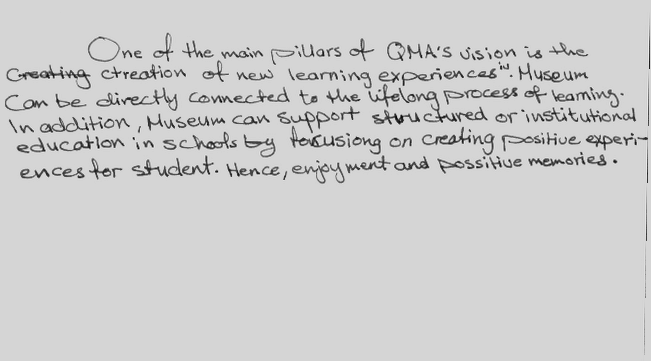 One of the main pillars of QMA's vision is the
Creating ctreation of new learning experiences"". Museum
Can be directly connected to the lifelong process of learning.
In addition, Museum can support structured or institutional
education in schools by focusiong on creating positive experi-
ences for student. Hence, enjoyment and possitive memories.